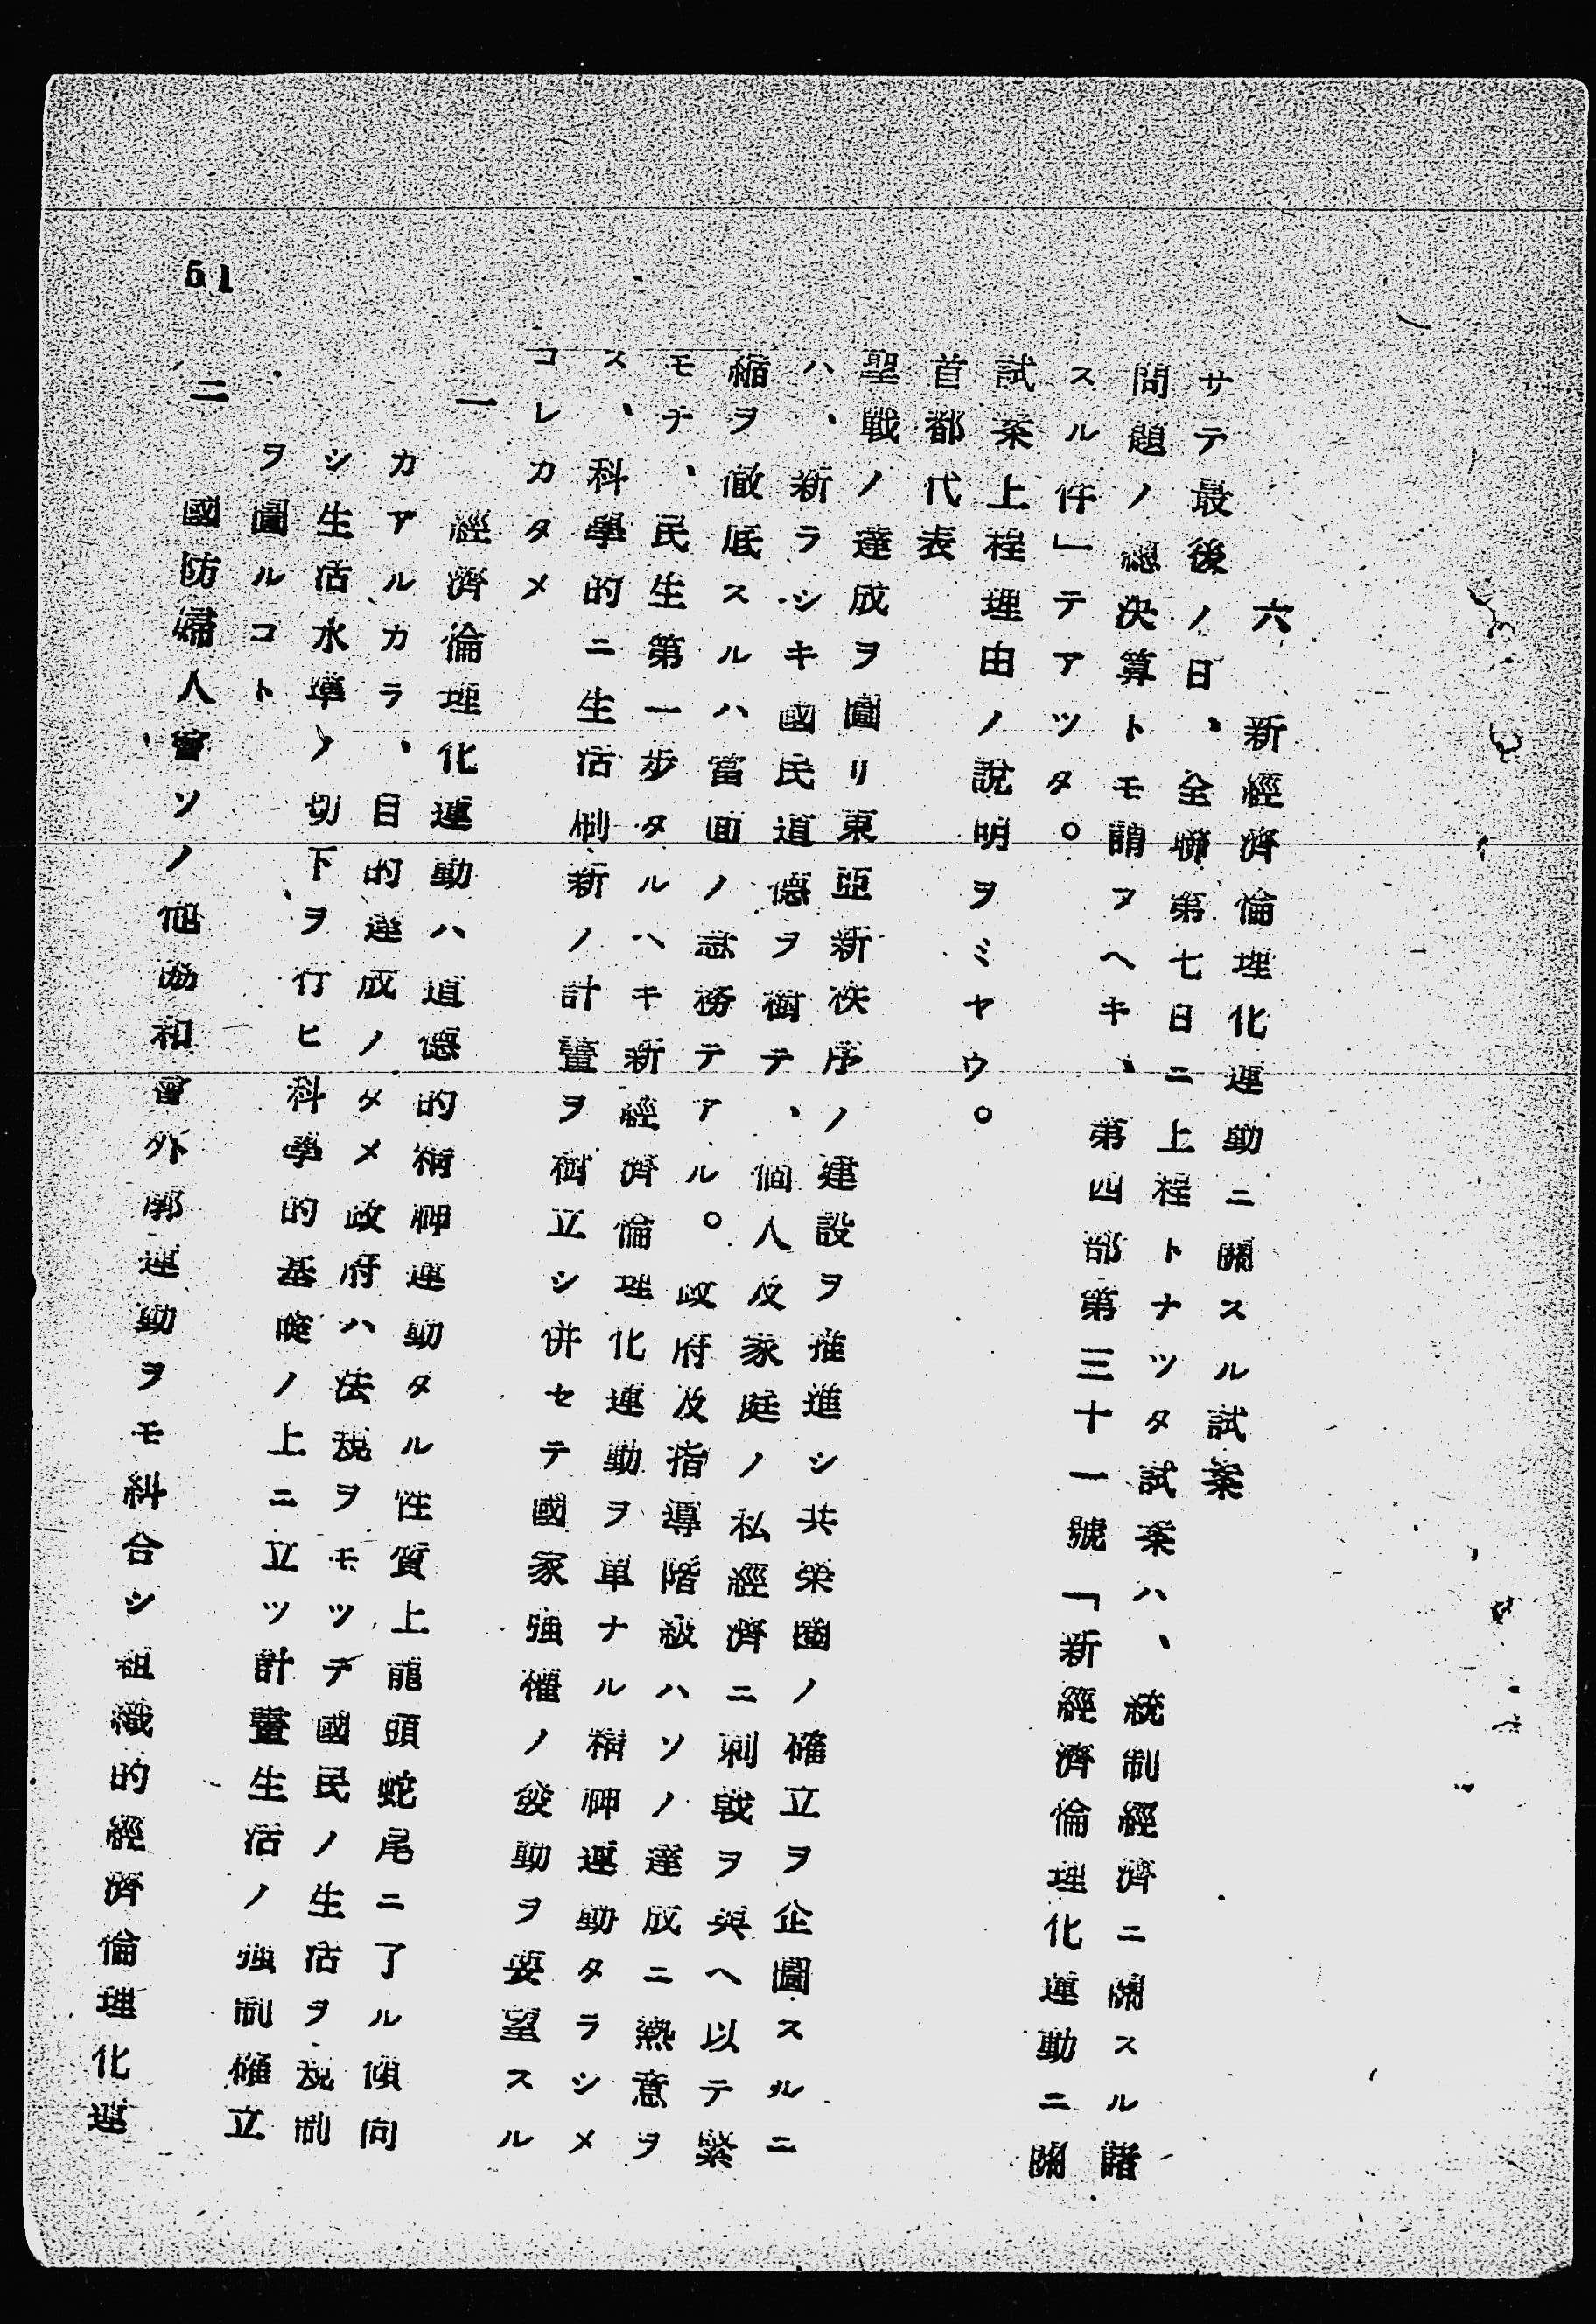 六　新經濟倫理化運動ニ關スル試案
サテ最後ノ日、全聯第七日ニ上程トナツタ試案ハ、統制經濟ニ關スル諸
問題ノ總決算トモ謂フヘキ、第四部第三十一號「新經濟倫理化運動ニ關
スル件」テアツタ。
試案上程理由ノ說明ヲミヤウ。
首都代表
聖戰ノ達成ヲ圖リ東亞新秩序ノ建設ヲ推進シ共榮圈ノ確立ヲ企圖スルニ
ハ、新ラシキ國民道德ヲ樹テ、個人及家庭ノ私經濟ニ刺戟ヲ與ヘ以テ緊
縮ヲ徹底スルハ當面ノ急務テアル。政府及指導階級ハソノ達成ニ熱意ヲ
モチ、民生第一步タルヘキ新經濟倫理化運動ヲ單ナル精神運動タラシメ
ス、科學的ニ生活刷新ノ計畫ヲ樹立シ併セテ國家强權ノ發動ヲ要望スル
コレカタメ
一　經濟倫理化運動ハ道德的精神運動タル性質上龍頭蛇尾ニ了ル傾向
カアルカラ、目的達成ノタメ政府ハ法規ヲモツテ國民ノ生活ヲ規制
シ生活水準ノ切下ヲ行ヒ科學的基礎ノ上ニ立ツ計畫生活ノ强制確立
ヲ圖ルコト
二　國防婦人會ソノ他協和會外廓運動ヲモ糾合シ組織的經濟倫理化運
51